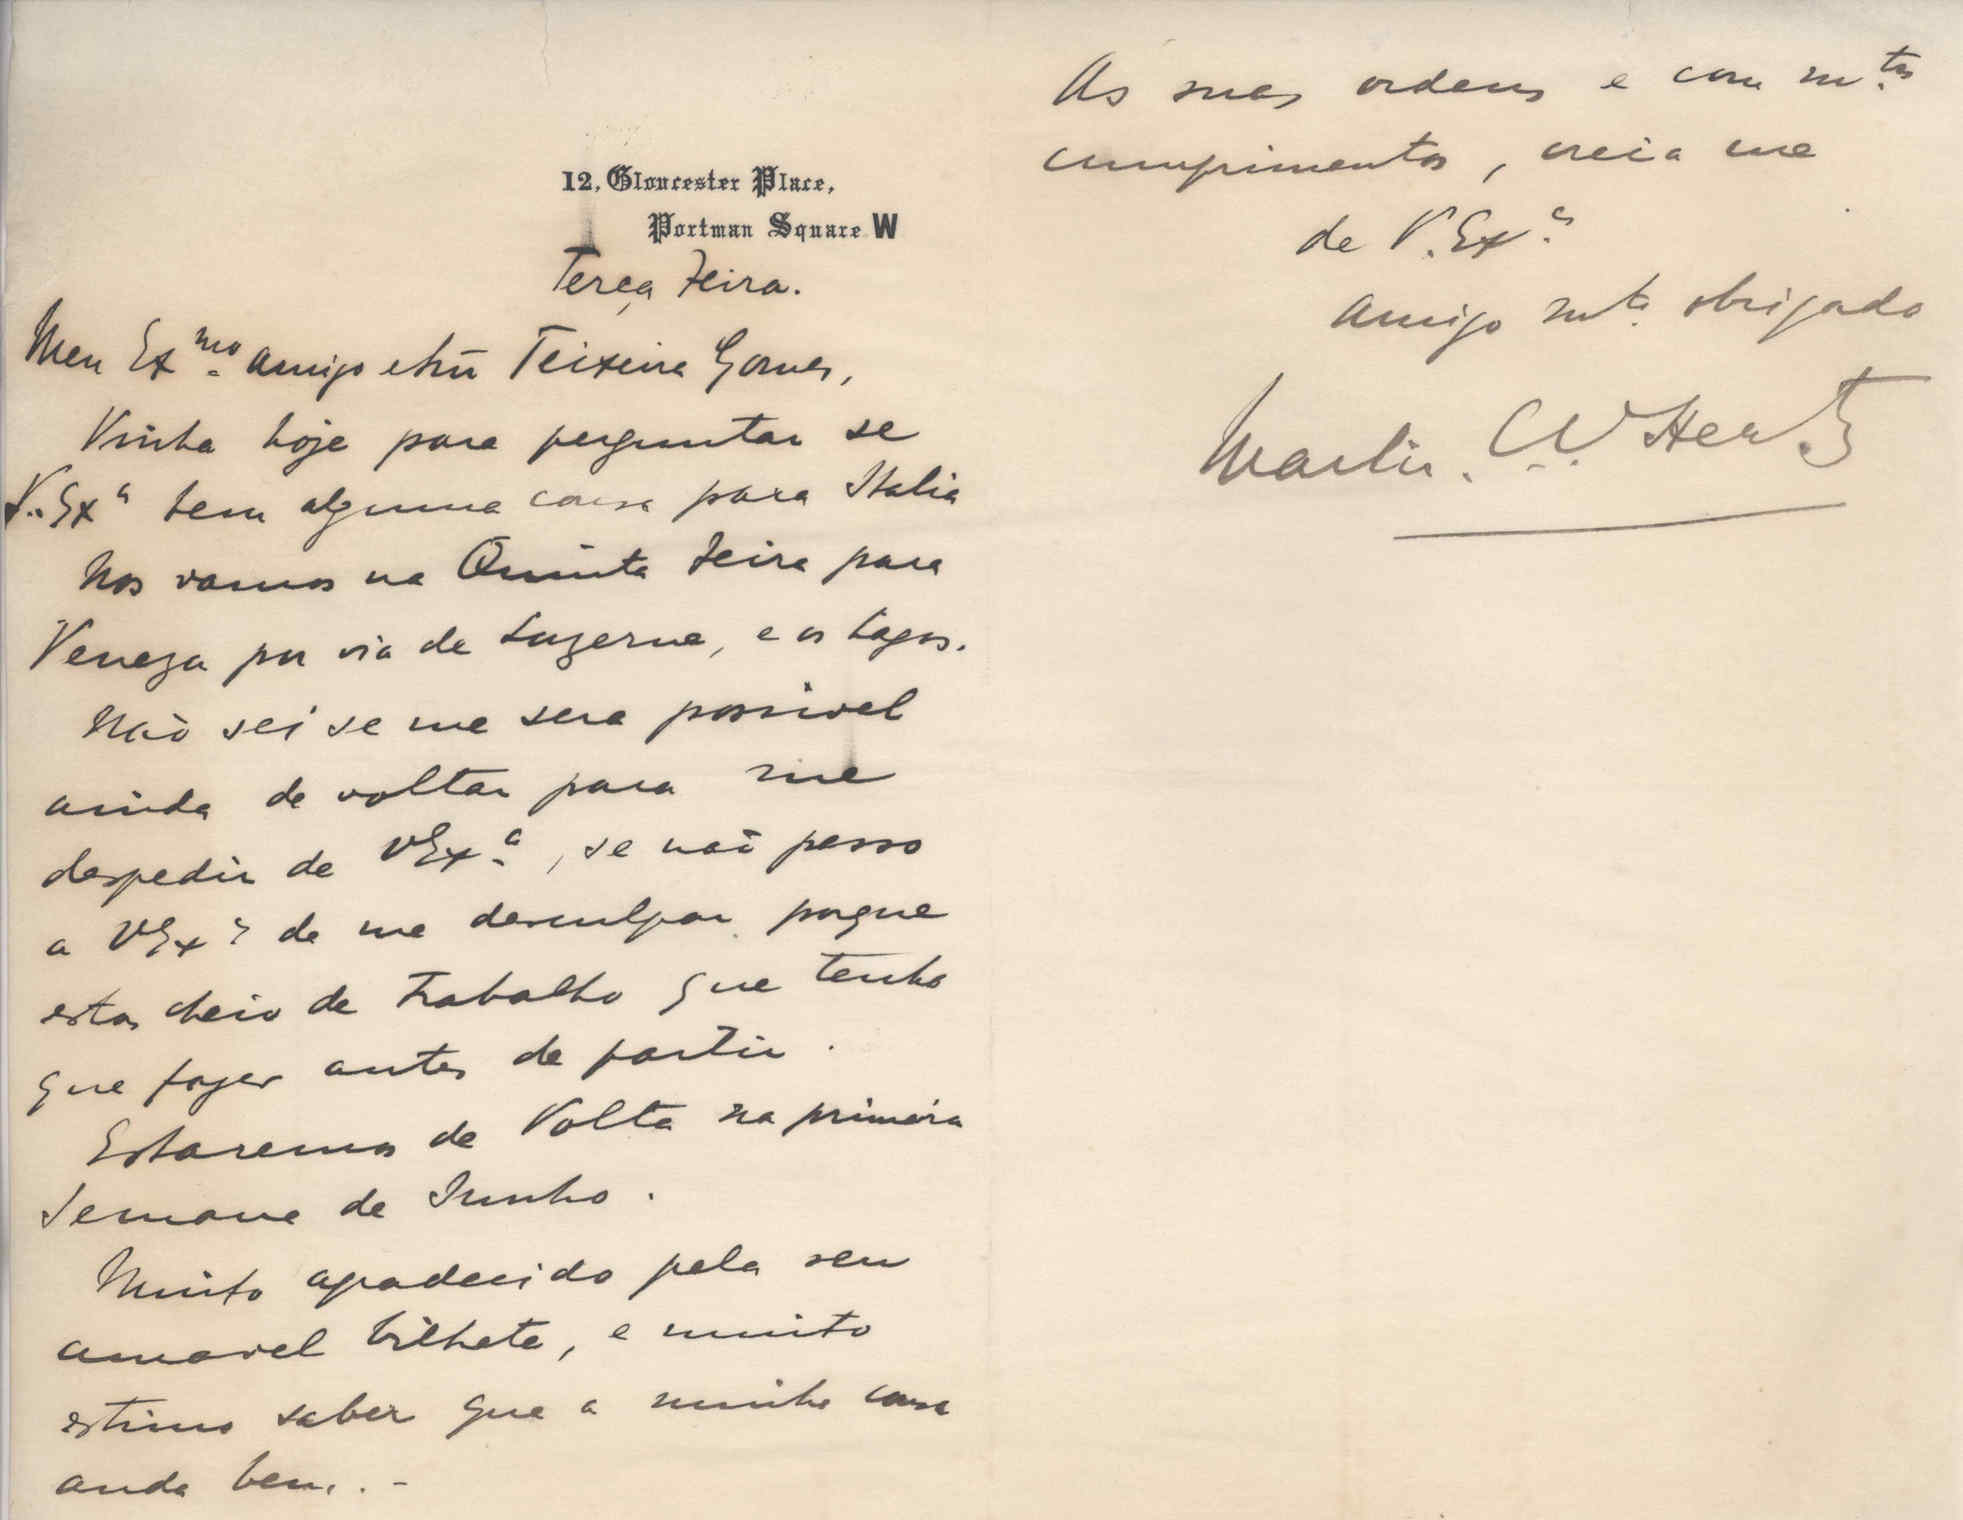 12, Gloucester Place,
Portman Square W
Terça Feira.
Meu Exmo Amigo e Snr Teixeira Gomes,
Vinha hoje para perguntar se
V. Exa tem alguma cousa para Italia
Nos vamos na Quinta Feira para
Veneza por via de Luzerne, e os Lagos.
Não sei se me sera possivel
ainda de voltar para me
despedir de VExa, se não pesso
a VExa de me desculpar porque
estou cheio de trabalho que tenho
que fazer antes de partir.
Estaremos de Volta na primeira
Semana de Junho.
Muito agradecido pela seu
amavel bilhete, e muito
estimo saber que a minha cousa
anda bem. . -
As suas ordens e com mtos
cumprimentos, creia me
de V. Exa
Amigo mto obrigado
Martin. C. W Hertz